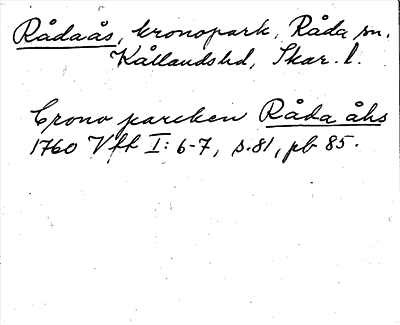 Rådaås, kronopark, Råda sn.
Kållandshd, Skar. l.
Crono parcken Råda åhs
1760 Vft I: 6-7, s. 81, pb 85.